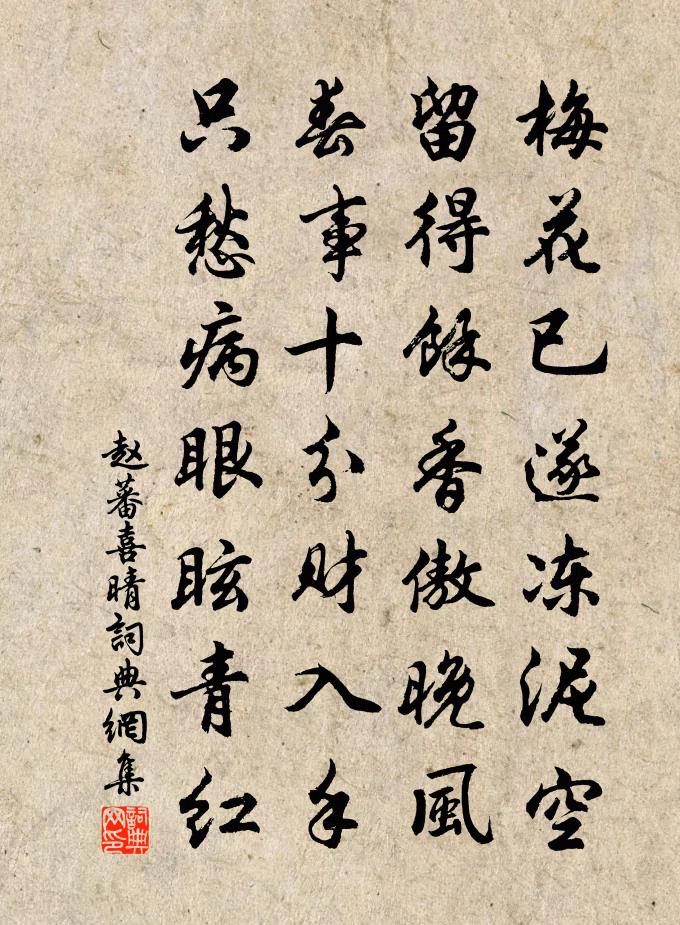 梅花已遂冻泥空
留得馀香傲晚風
春事十分财入手
只愁病眼眩青红
赵蕃喜晴詞典網集
詞典網印